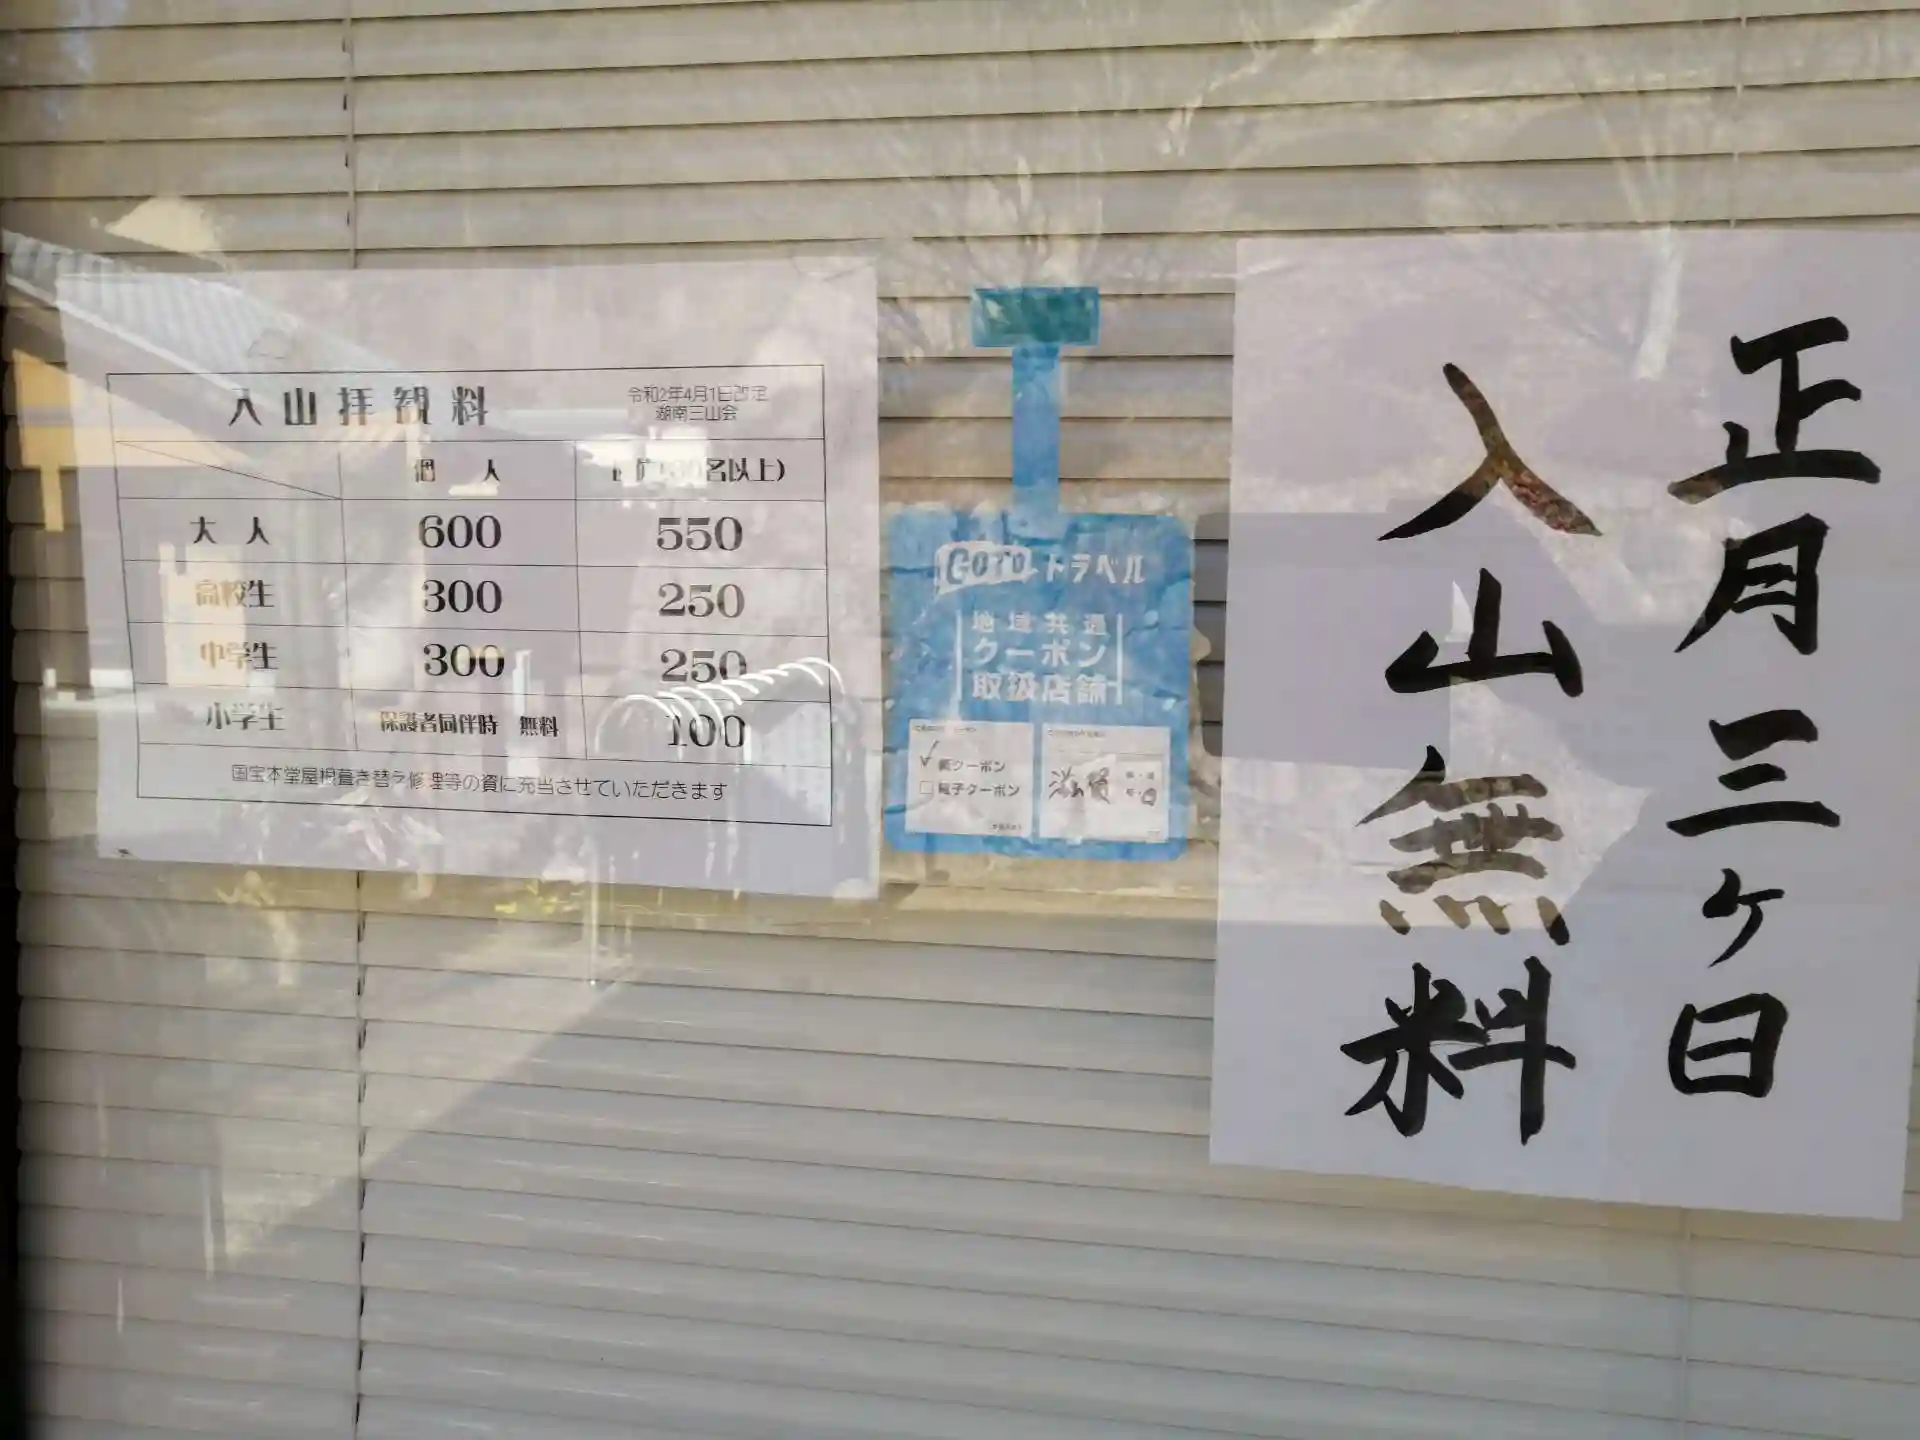 入山拝観料
令和2年4月1日改定
湖南三山会
個 人 名以上)
大 人 600 550
高校生 300 250
中学生 300 250
小学生 保護者同伴時 無料 100
国宝本堂屋根葺き替え修理等の資に充当させていただきます
GOTOトラベル
地域共通
クーポン
取扱店舗
紙クーポン
電子クーポン
正月三ケ日
入山無料